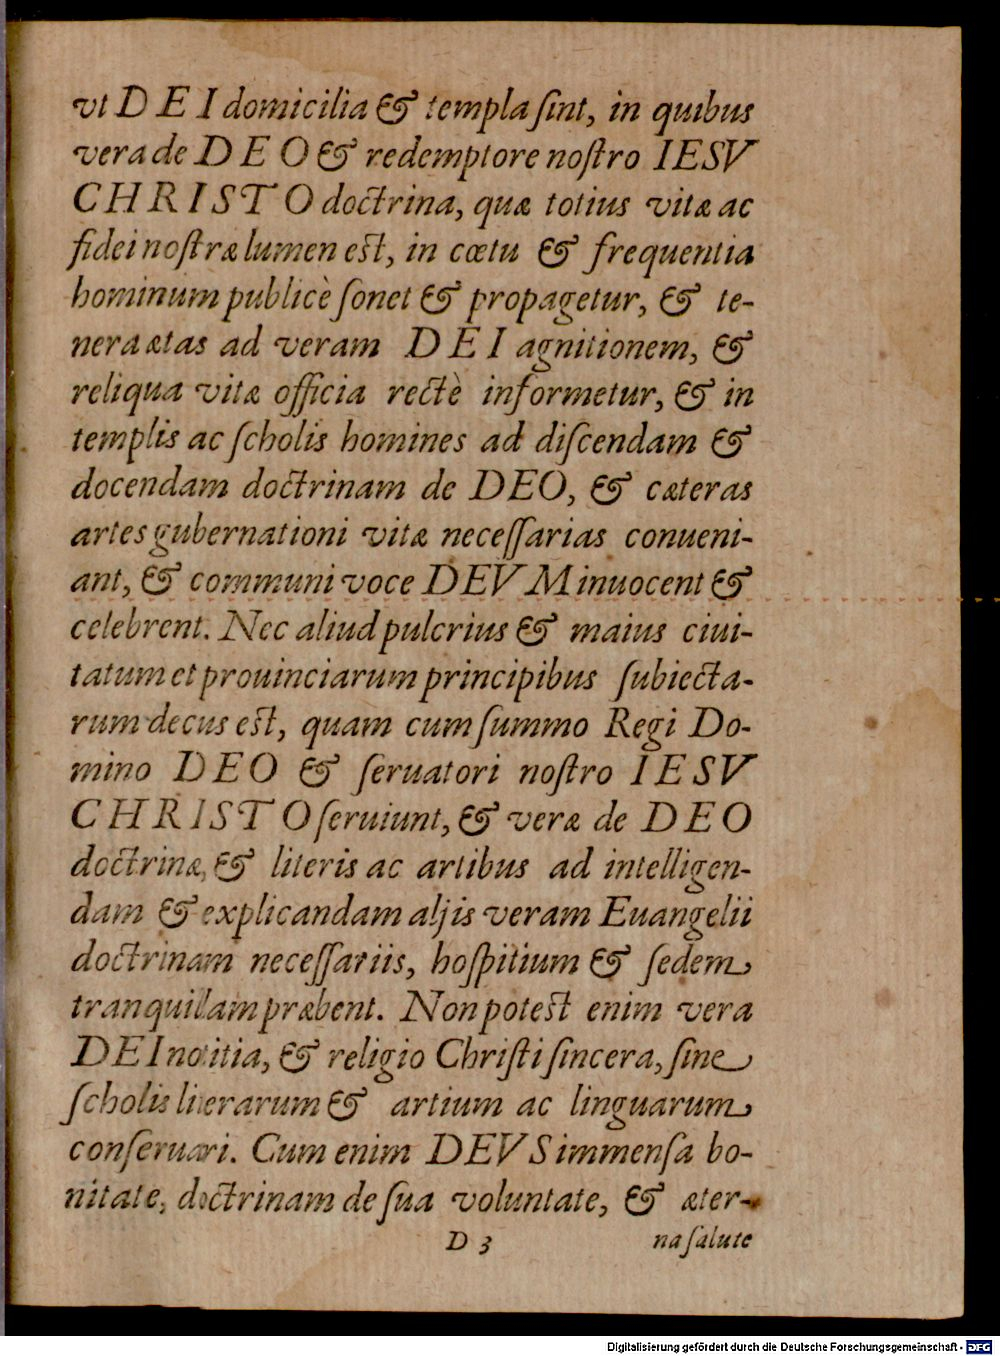 vt DEI domicilia & templa ſint, in quibus
vera de DEO & redemptore noſtro IESV
CHRISTO doctrina, quæ totius vitæ ac
fidei noſtræ lumen est, in cœtu & frequentia
hominum publicè ſonet & propagetur, & te-
nera ætas ad veram DEI agnitionem, &
reliqua vitæ officia rectè informetur, & in
templis ac ſcholis homines ad diſcendam &
docendam doctrinam de DEO, & cæteras
artes gubernationi vitæ neceſſarias conueni-
ant, & communi voce DEVM inuocent &
celebrent. Nec aliud pulcrius & maius ciui-
tatum et prouinciarum principibus ſubiecta-
rum decus est, quam cum ſummo Regi Do-
mino DEO & ſeruatori noſtro IESV
CHRISTO ſeruiunt, & veræ de DEO
doctrinæ, & literis ac artibus ad intelligen-
dam & explicandam alijs veram Euangelii
doctrinam neceſſariis, hoſpitium & ſedem
tranquillam præbent. Non potest enim vera
DEI notitia, & religio Chriſti ſincera, ſine
ſcholis literarum & artium ac linguarum
conſeruari. Cum enim DEVS immenſa bo-
nitate, doctrinam de ſua voluntate, & æter-
D 3 na ſalute
Digitalisierung gefördert durch die Deutsche Forschungsgemeinschaft - DFG